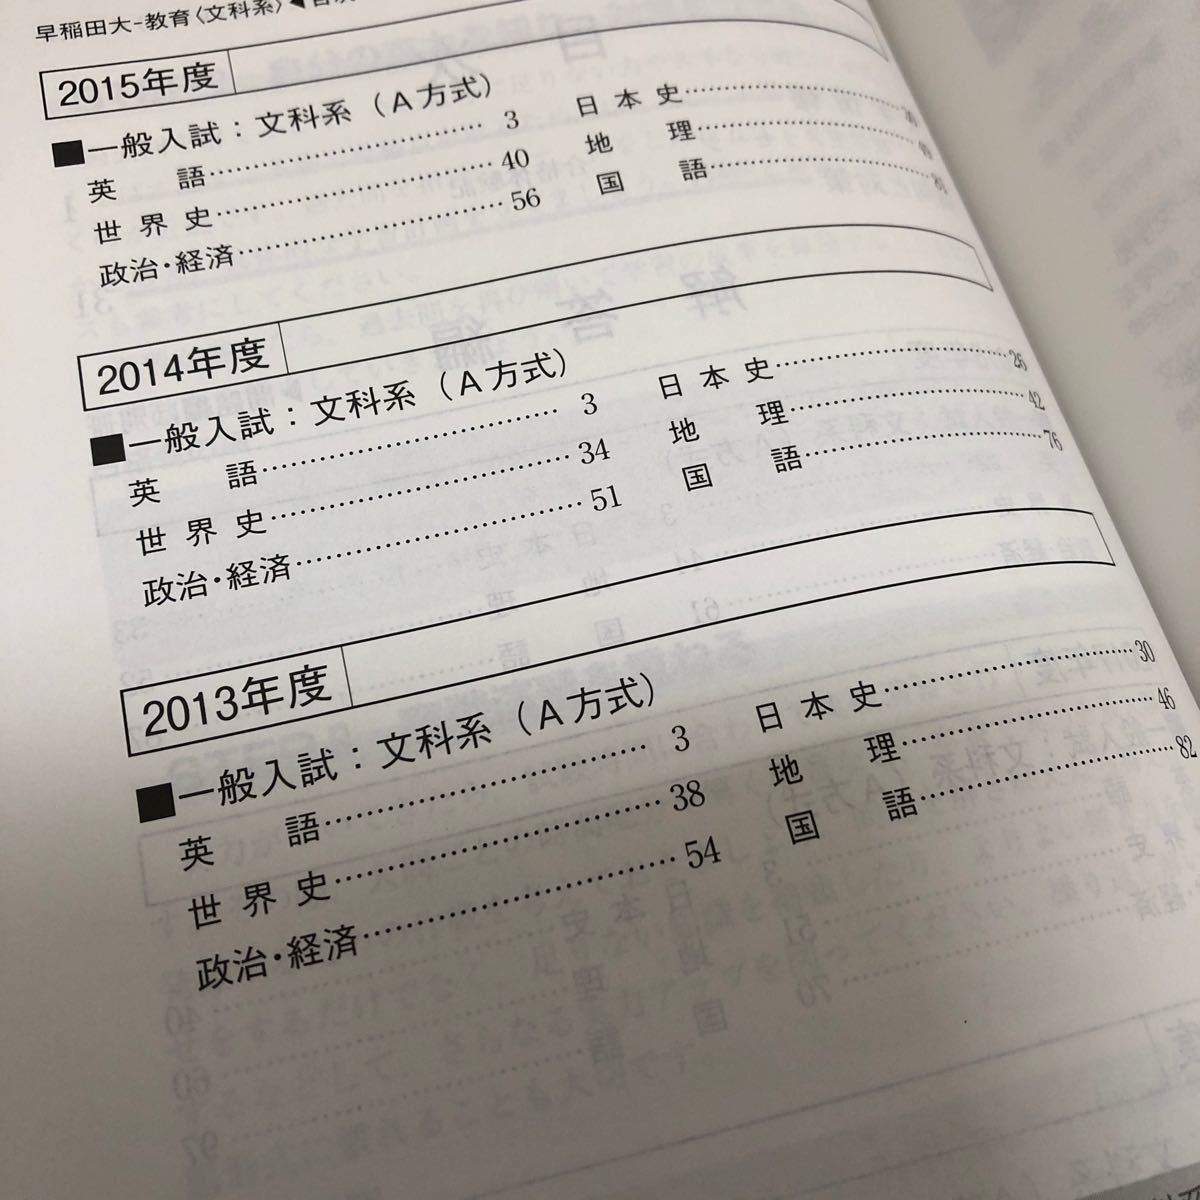 早稲田大-教育〈文科系〉◀目次
2015年度
■一般入試：文科系（A方式）
英語 3 日本史
世界史 40 地理
政治・経済 56 国語
2014年度
■一般入試：文科系（A方式）
英語 3 日本史 26
世界史 34 地理 42
政治・経済 51 国語 76
2013年度
■一般入試：文科系（A方式）
英語 3 日本史 30
世界史 38 地理 46
政治・経済 54 国語 82